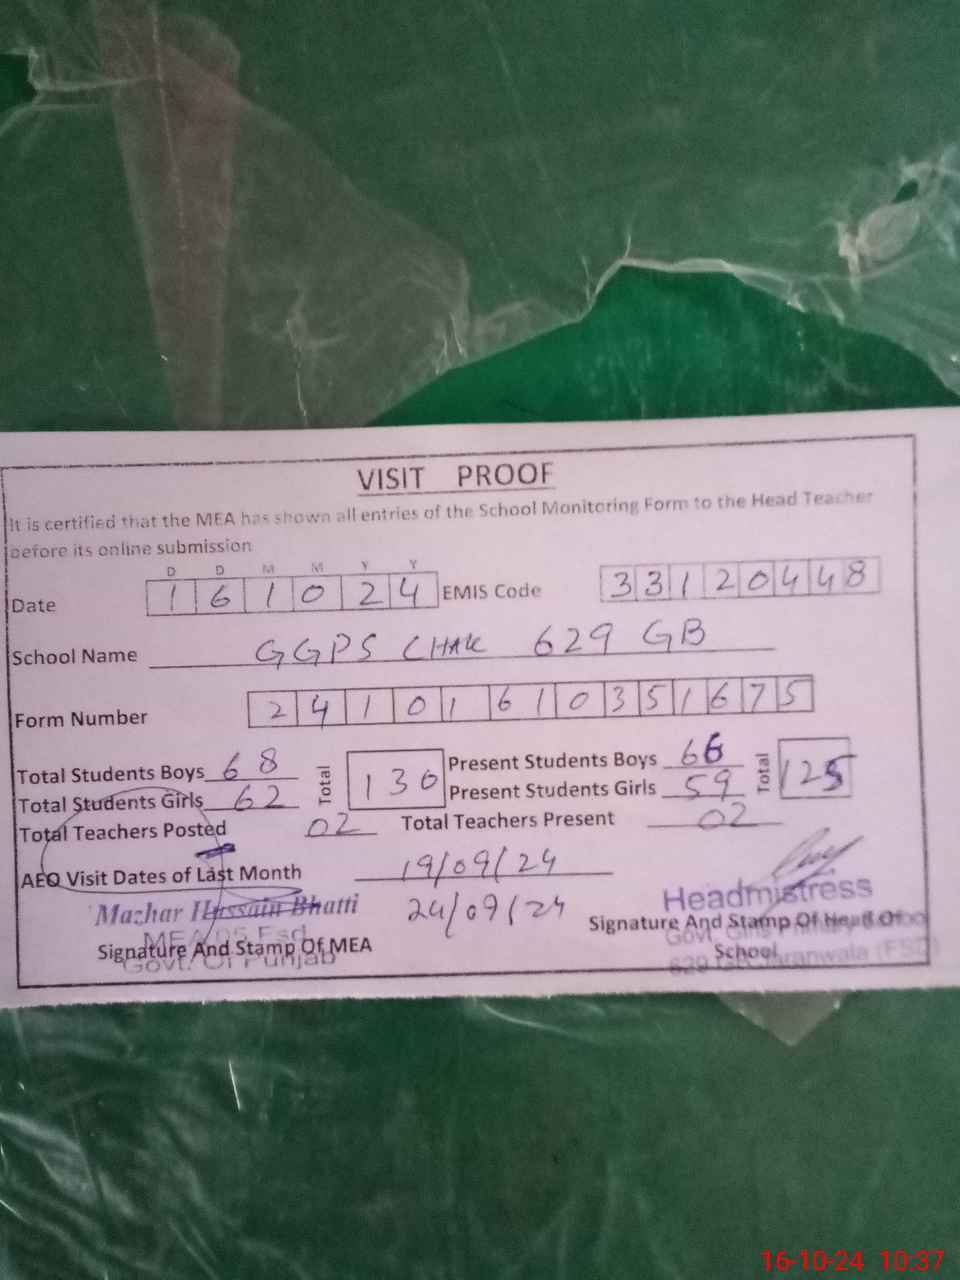 VISIT PROOF
It is certified that the MEA has shown all entries of the School Monitoring Form to the Head Teacher
before its online submission
D D M M Y Y
Date 1 6 1 0 2 4 EMIS Code 3 3 1 2 0 4 4 8
School Name GGPS CHAK 629 GB
Form Number 2 4 1 0 1 6 1 0 3 5 1 6 7 5
Total Students Boys 68 Total 130 Present Students Boys 66 Total 125
Total Students Girls 62 Present Students Girls 59
Total Teachers Posted 02 Total Teachers Present 02
AEO Visit Dates of Last Month 19/09/24
24/09/24
Mazhar Hussain Bhatti
MEA 05 Fsd
Govt. Of Punjab
Signature And Stamp Of MEA
Headmistress
Signature And Stamp Of Head Of
School
629 GB Jaranwala (FSD)
16-10-24 10:37